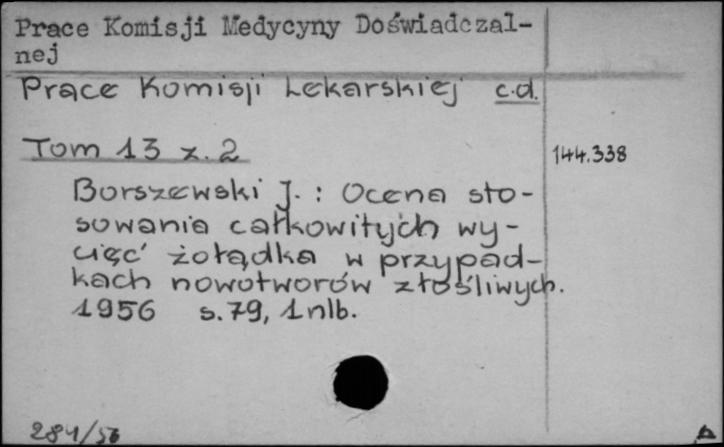 Prace Komisji Medycyny Doświadczal-
nej
Prace Komisji Lekarskiej c.d.
Tom 13 z. 2
144.338
Borszewski J. : Ocena sto-
sowania całkowitych wy-
cięć żołądka w przypad-
kach nowotworów złośliwych.
1956 s. 79, 1 nlb.
284/56